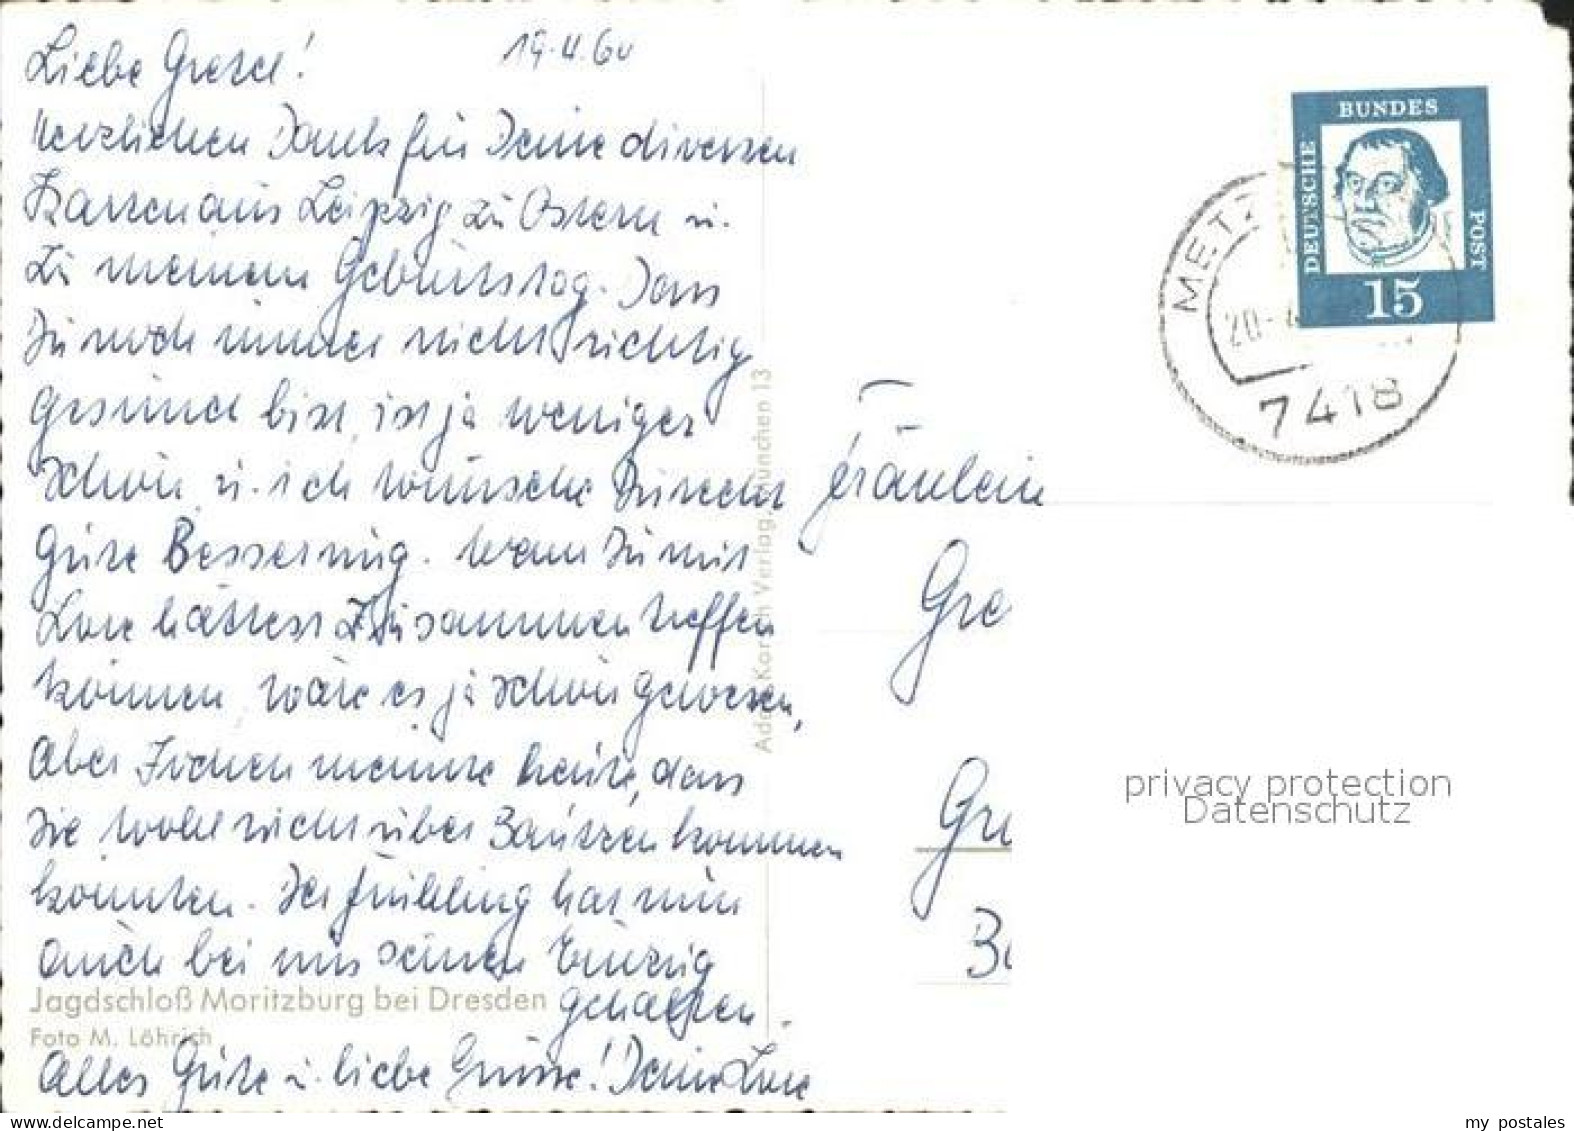 Liebe Gretel!
19.4.60
herzlichen Dank für Deine diversen
Karten aus Leipzig zu Ostern u.
zu meinem Geburtstag. Dass
Du noch immer nicht richtig
gesund bist, ist ja weniger
schön, u. ich wünsche Dir recht
gute Besserung. Wenn Du mit
Lore hättest zusammentreffen
können wäre es ja schön gewesen,
aber Jochen meinte heute, dass
sie wohl nicht über Bautzen kommen
könnten. Der Frühling hat nun
auch bei uns seinen Einzug
gehalten.
Alles Gute u. liebe Grüsse! Deine Lore
Jagdschloß Moritzburg bei Dresden
Foto M. Löhrich
Korsch Verlag, München 13
DEUTSCHE BUNDES POST
15
METZ
20.-4
7418
Fräulein
Gre
Gru
privacy protection
Datenschutz
my postales
www.delcampe.net